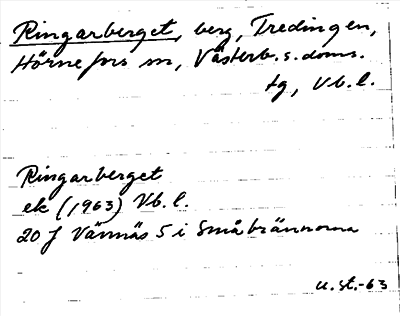 Ringarberget, berg, Tredingen,
Hörnefors sn, Västerb. s. doms.
tg, Vb. l.
Ringarberget
ek (1963) Vb. l.
20 J Vännäs 5 i Småbrännorna
u. st. -63